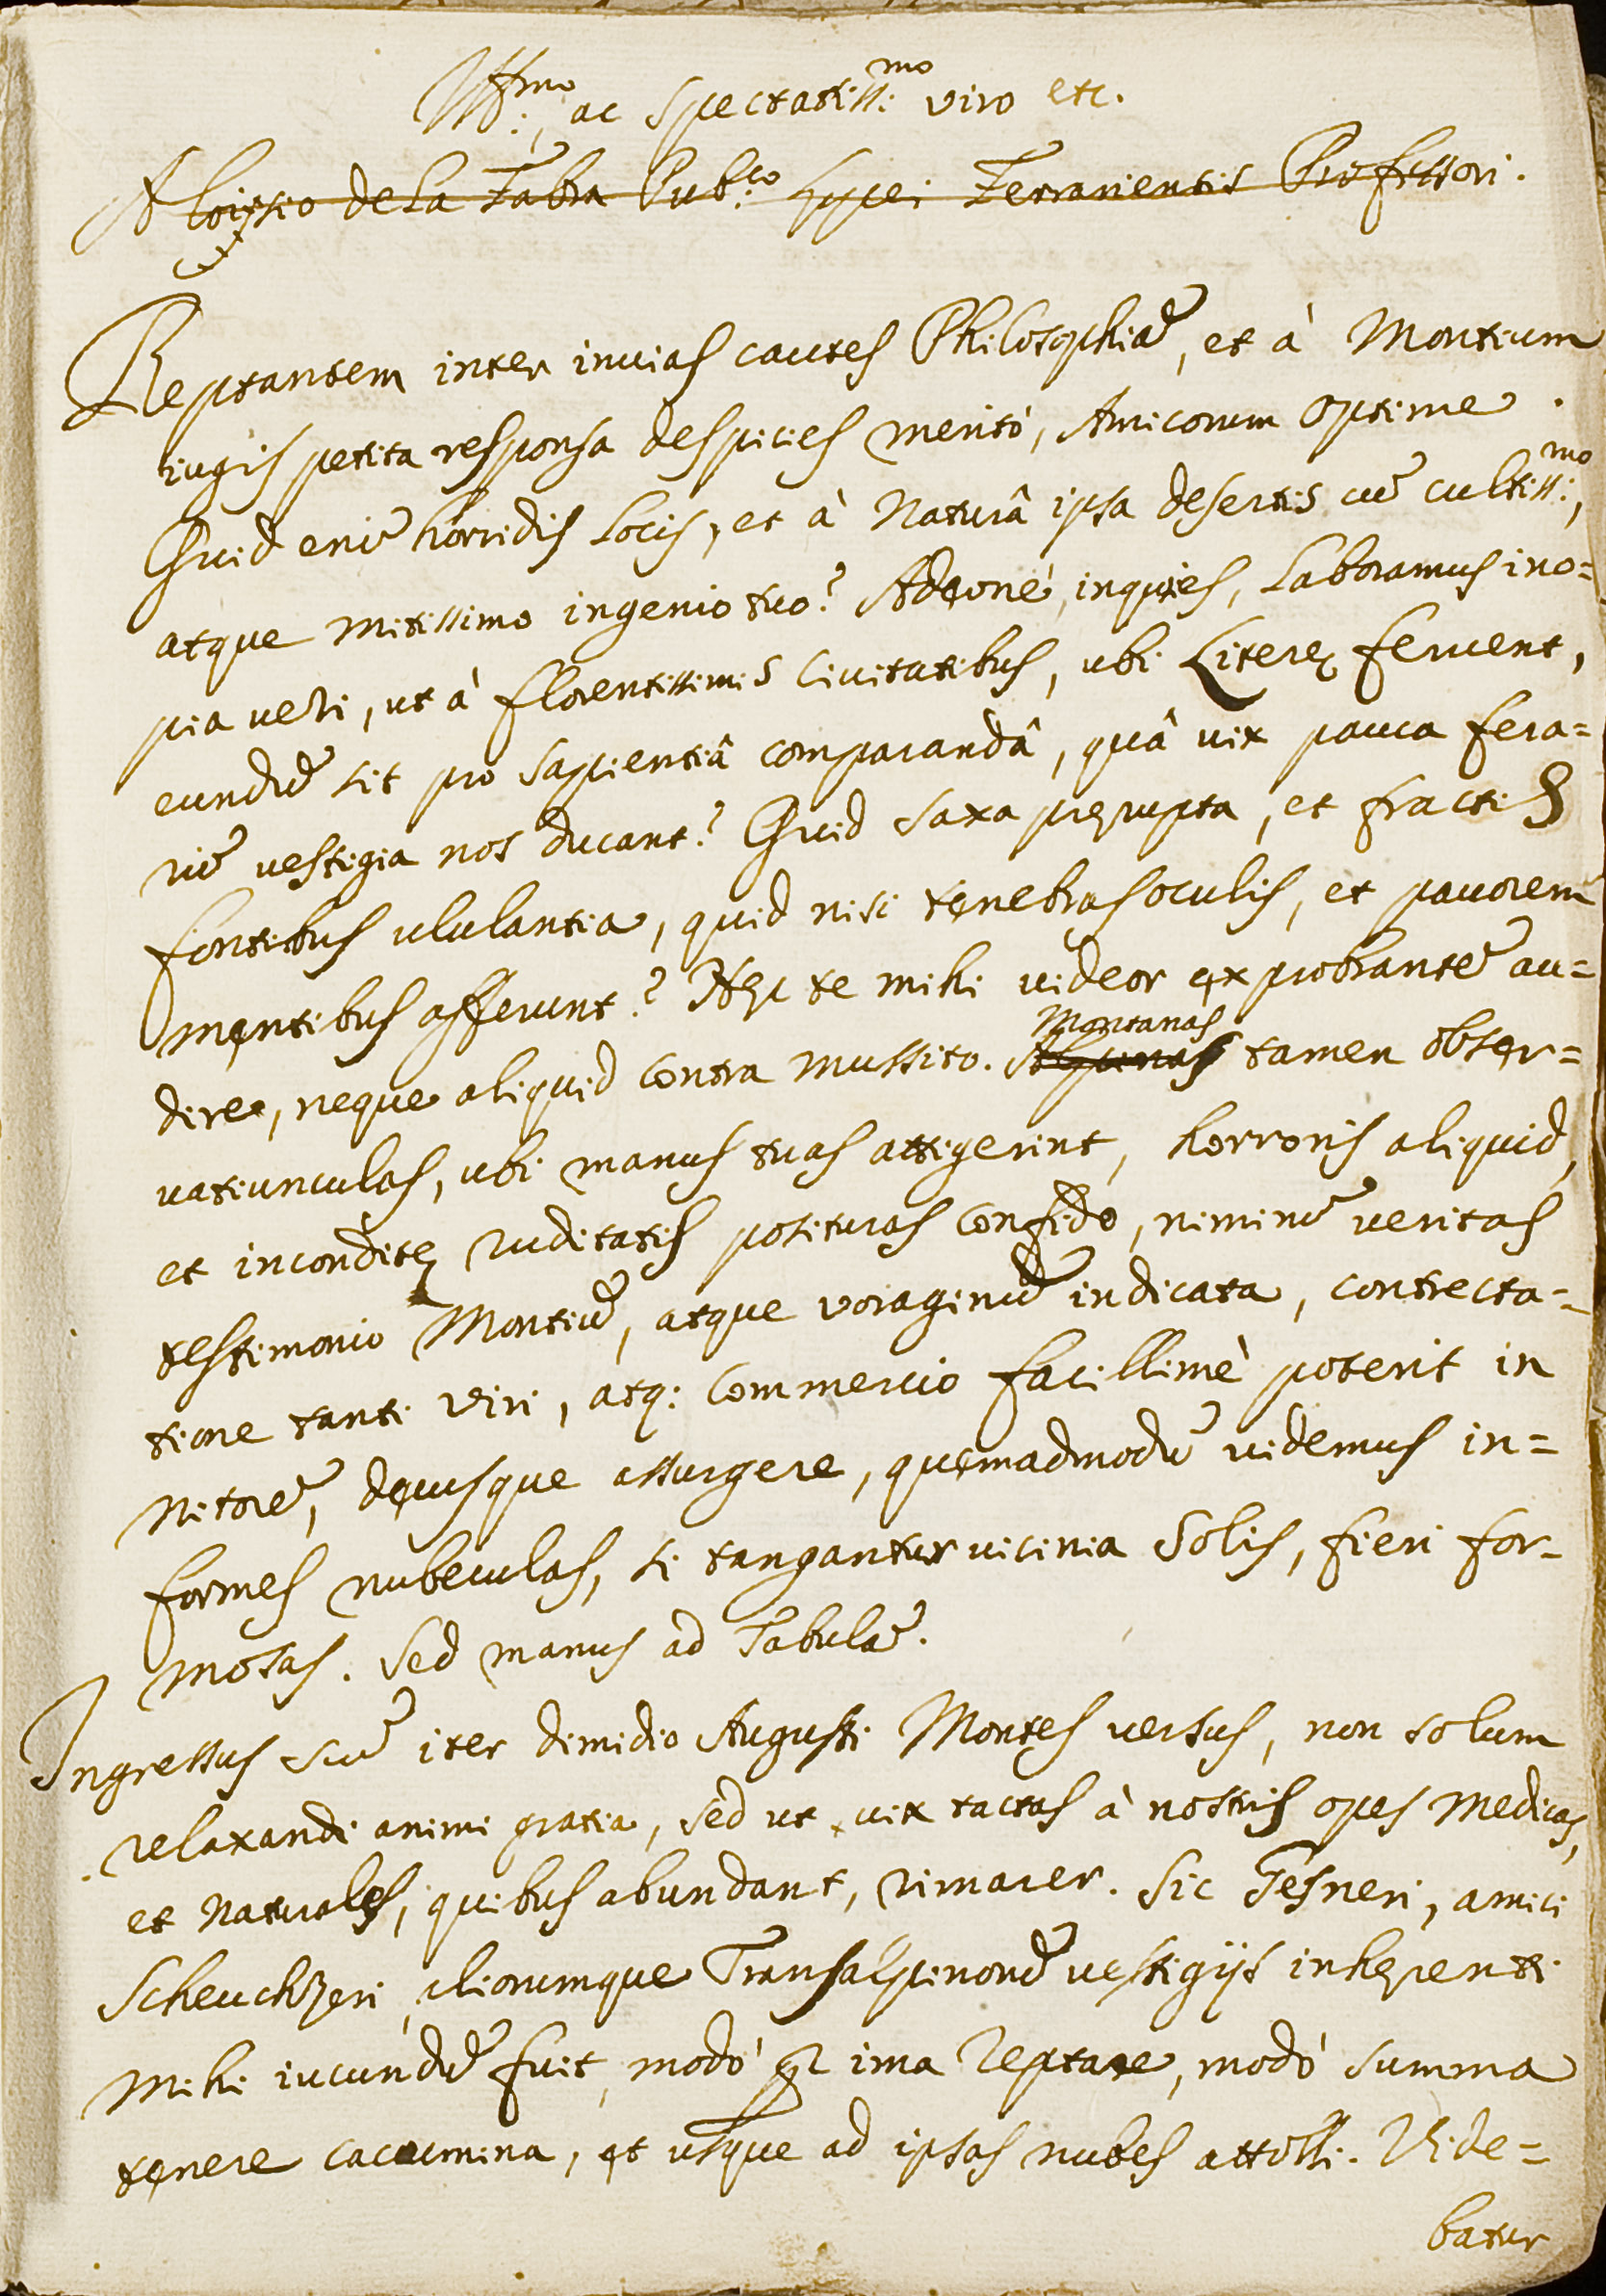 Ill:mo, ac Spectatiss:mo viro etc.
Aloissio dela Fabra Pub:co Lycei Ferrariensis Professori.
Reptantem inter inuias cautes Philosophiã, et à Montium
iugis petita responsa despicies meritò, Amicorum Optime.
Quid enĩ horridis Locis, et à Naturâ ipsa desertis cũ cultiss:mo,
atque mitissimo ingenio tuo? Adęone, inquies, Laboramus ino=
pia ueri, ut à florentissimis Ciuitatibus, ubi Literę feruent,
eundũ sit pro Sapientiâ comparandâ, quâ uix pauca fera=
rũ uestigia nos ducant? Quid saxa pręrupta, et fractis
fontibus ululantia, quid nisi tęnebras oculis, et pauorem
męntibus afferunt? Hęc te mihi uideor ęxprobrantẽ au=
dire, neque aliquid contra mussito. Alpinas Montanas tamen obser=
uatiunculas, ubi manus tuas attigerint, horroris aliquid,
et inconditę ruditatis posituras confido, nimirũ ueritas
testimonio Montiũ, atque voraginũ indicata, contrecta=
tione tanti viri, atq: Commercio facillimè poterit in
nitorẽ, dęcusque assurgere, quęmadmodũ uidemus in=
formes nubeculas, si tangantur uicinia Solis, fieri for=
mosas. Sed manus ad Tabulã.
Ingressus sũ iter dimidio Augusti Montes uersus, non solum
relaxandi animi gratia, sed ut uix tactas à nostris opes Medicas,
et Naturales, quibus abundant, rimarer. Sic Gesneri, amici
Scheuchzeri, aliorumque Transalpinorũ uęstigijs inhęrenti
mihi iucundũ fuit, modò ꝑ ima reptare, modò summa
tęnere cacumina, ęt usque ad ipsas nubes attolli. Vide=
batur